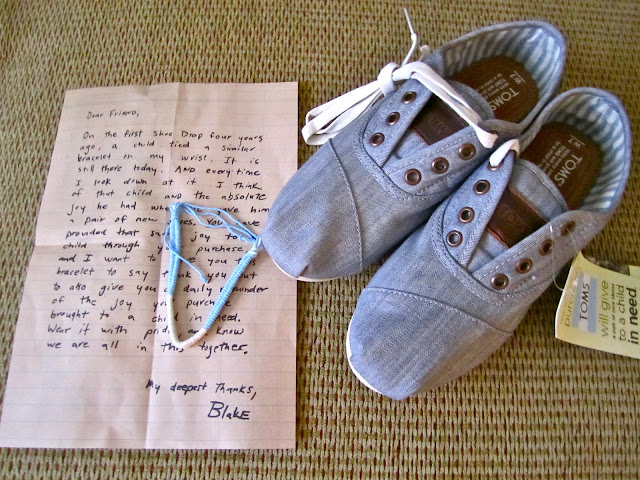 Dear Friend,
On the first Shoe Drop four years
ago, a child tied a similar
bracelet on my wrist. It is
still there today. AND every time
I look down at it I think
of that child and the absolute
joy he had when we gave him
a pair of new shoes. You have
provided that same joy to a
child through your purchase
and I want to give you this
bracelet to say thank you but
to also give you a daily reminder
of the joy your purchase
brought to a child in need.
Wear it with pride and know
we are all in this together.
My deepest Thanks,
Blake
TOMS
TOMS
TOMS
will give
to a child
in need